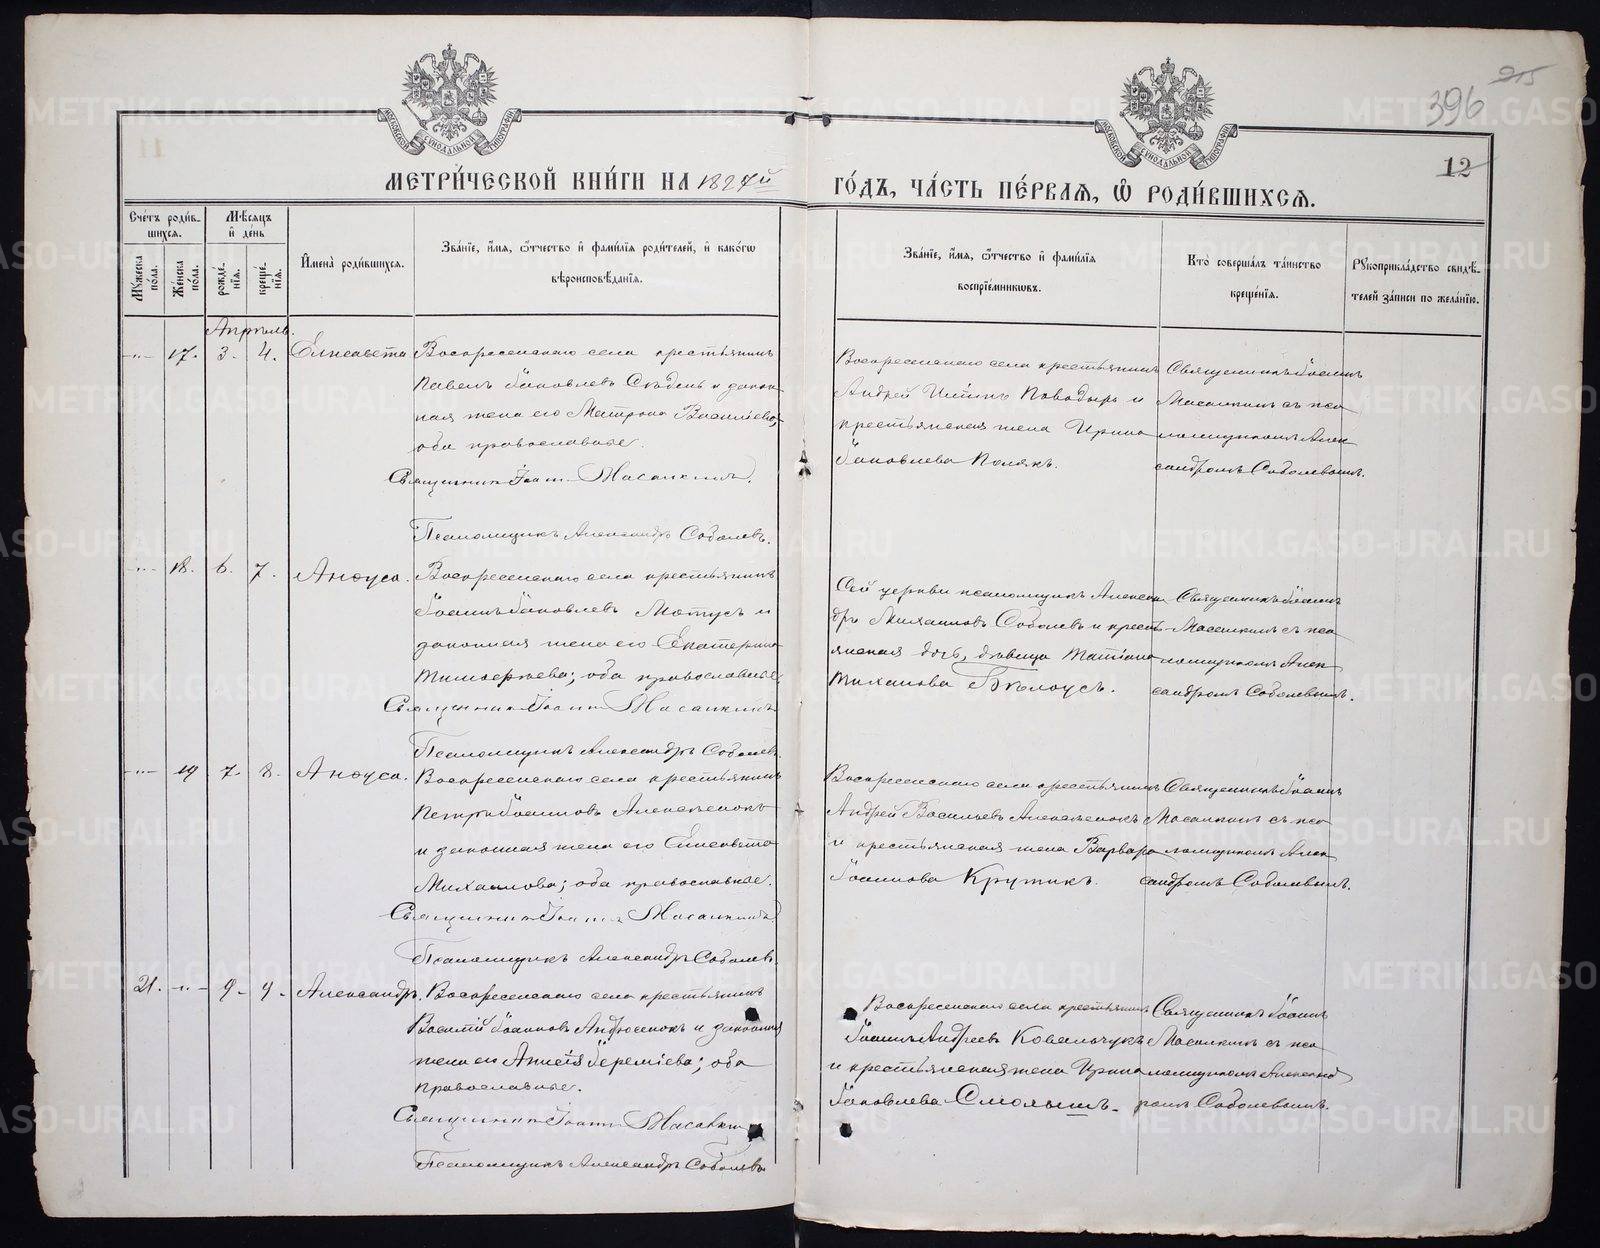 215
396
12
МЕТРИ́ЧЕСКОЙ КНИ́ГИ НА 1897й ГО́ДЪ, ЧА́СТЬ ПЕ́РВАѦ, Ѡ҆ РОДИ́ВШИХСѦ.
Сче́тъ роди́в-
шихсѧ.
Мѣ́сѧцъ
и҆ де́нь
Мꙋ́жеска
по́ла.
Же́нска
по́ла.
рожде́-
нїѧ.
креще́-
нїѧ.
И҆мена̀ роди́вшихсѧ.
Зва́нїе, и҆́мѧ, ѻ҆́тчество и҆ фами́лїѧ роди́телей, и҆ како́гѡ
вѣроисповѣ́данїѧ.
Зва́нїе, и҆́мѧ, ѻ҆́тчество и҆ фами́лїѧ
воспрїе́мникѡвъ.
Кто̀ соверша́лъ та́инство
креще́нїѧ.
Рꙋкоприкла́дство свидѣ́-
телей за́писи по жела́нїю.
Апрѣль.
-"- 17. 3. 4. Елисавета
Воскресенскаго села крестьянинъ
Павелъ Іаковлевъ Скѣдень и закон-
ная жена его Матрона Васильева,
оба православные.
Священникъ Іоаннъ Масалкинъ.
Псаломщикъ Александръ Соболевъ.
Воскресенскаго села крестьянинъ
Андрей Поводырь и
крестьянская жена Ирина
Іаковлева Полякъ.
Священникъ Іоаннъ
Масалкинъ съ пса-
ломщикомъ Алек-
сандромъ Соболевымъ.
-"- 18. 6. 7. Анѳуса.
Воскресенскаго села крестьянинъ
Іоаннъ Іаковлевъ Мотусъ и
законная жена его Екатерина
Тимоѳеева; оба православные.
Священникъ Іоаннъ Масалкинъ
Псаломщикъ Александръ Соболевъ.
Сей церкви псаломщикъ Алексан-
дръ Михаиловъ Соболевъ и кресть-
янская дочь, дѣвица Татіана
Михаилова Бѣлоусъ.
Священникъ Іоаннъ
Масалкинъ съ пса-
ломщикомъ Алек-
сандромъ Соболевымъ.
-"- 19 7. 8. Анѳуса.
Воскресенскаго села крестьянинъ
Петръ Іоанновъ Алексѣенокъ
и законная жена его Елисавета
Михаилова; оба православные.
Священникъ Іоаннъ Масалкинъ
Псаломщикъ Александръ Соболевъ.
Воскресенскаго села крестьянинъ
Андрей Васильевъ Алексѣенокъ
и крестьянская жена Варвара
Іоаннова Крутикъ.
Священникъ Іоаннъ
Масалкинъ съ пса-
ломщикомъ Алек-
сандромъ Соболевымъ.
21. -"- 9. 9. Александръ.
Воскресенскаго села крестьянинъ
Василій Іоанновъ Андрюсенокъ и законная
жена его Анисія Іереміева; оба
православные.
Священникъ Іоаннъ Масалкинъ
Псаломщикъ Александръ Соболевъ
Воскресенскаго села крестьянинъ
Іоаннъ Андреевъ Ковальчукъ
и крестьянская жена Ирина
Іаковлева Смолышъ.
Священникъ Іоаннъ
Масалкинъ съ пса-
ломщикомъ Александ-
ромъ Соболевымъ.
METRIKI.GASO-URAL.RU